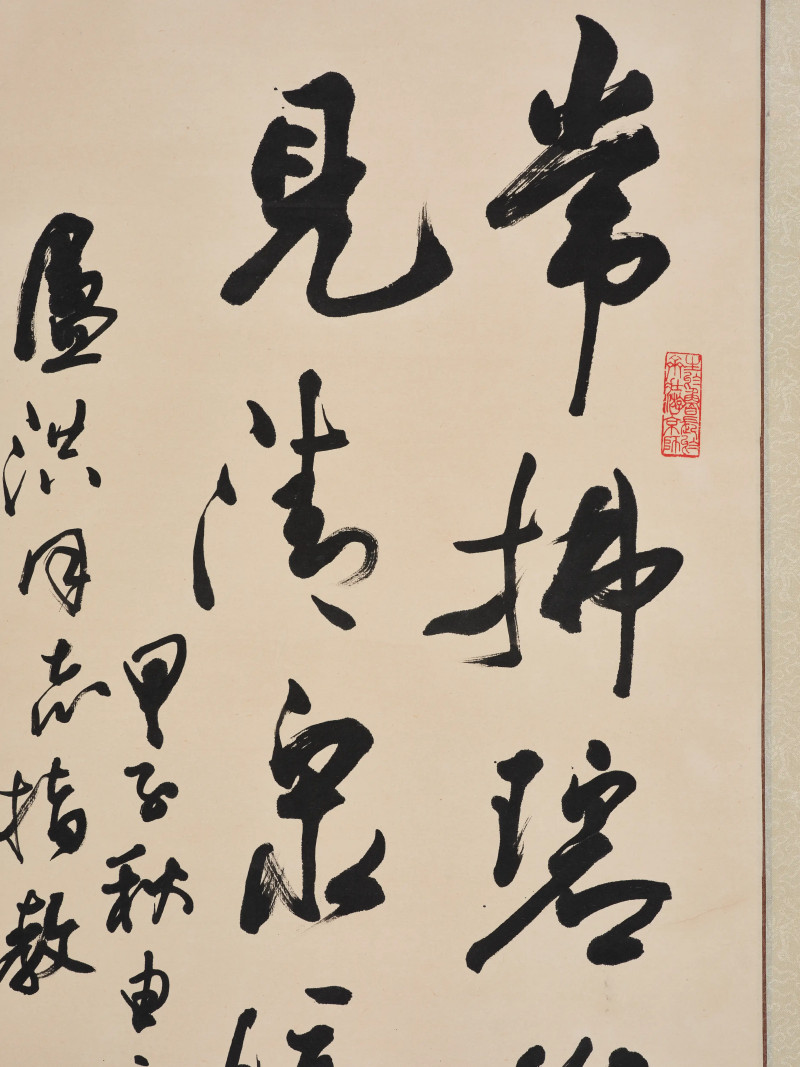 常拂碧
見清泉
甲子秋由
盧洪同志指教